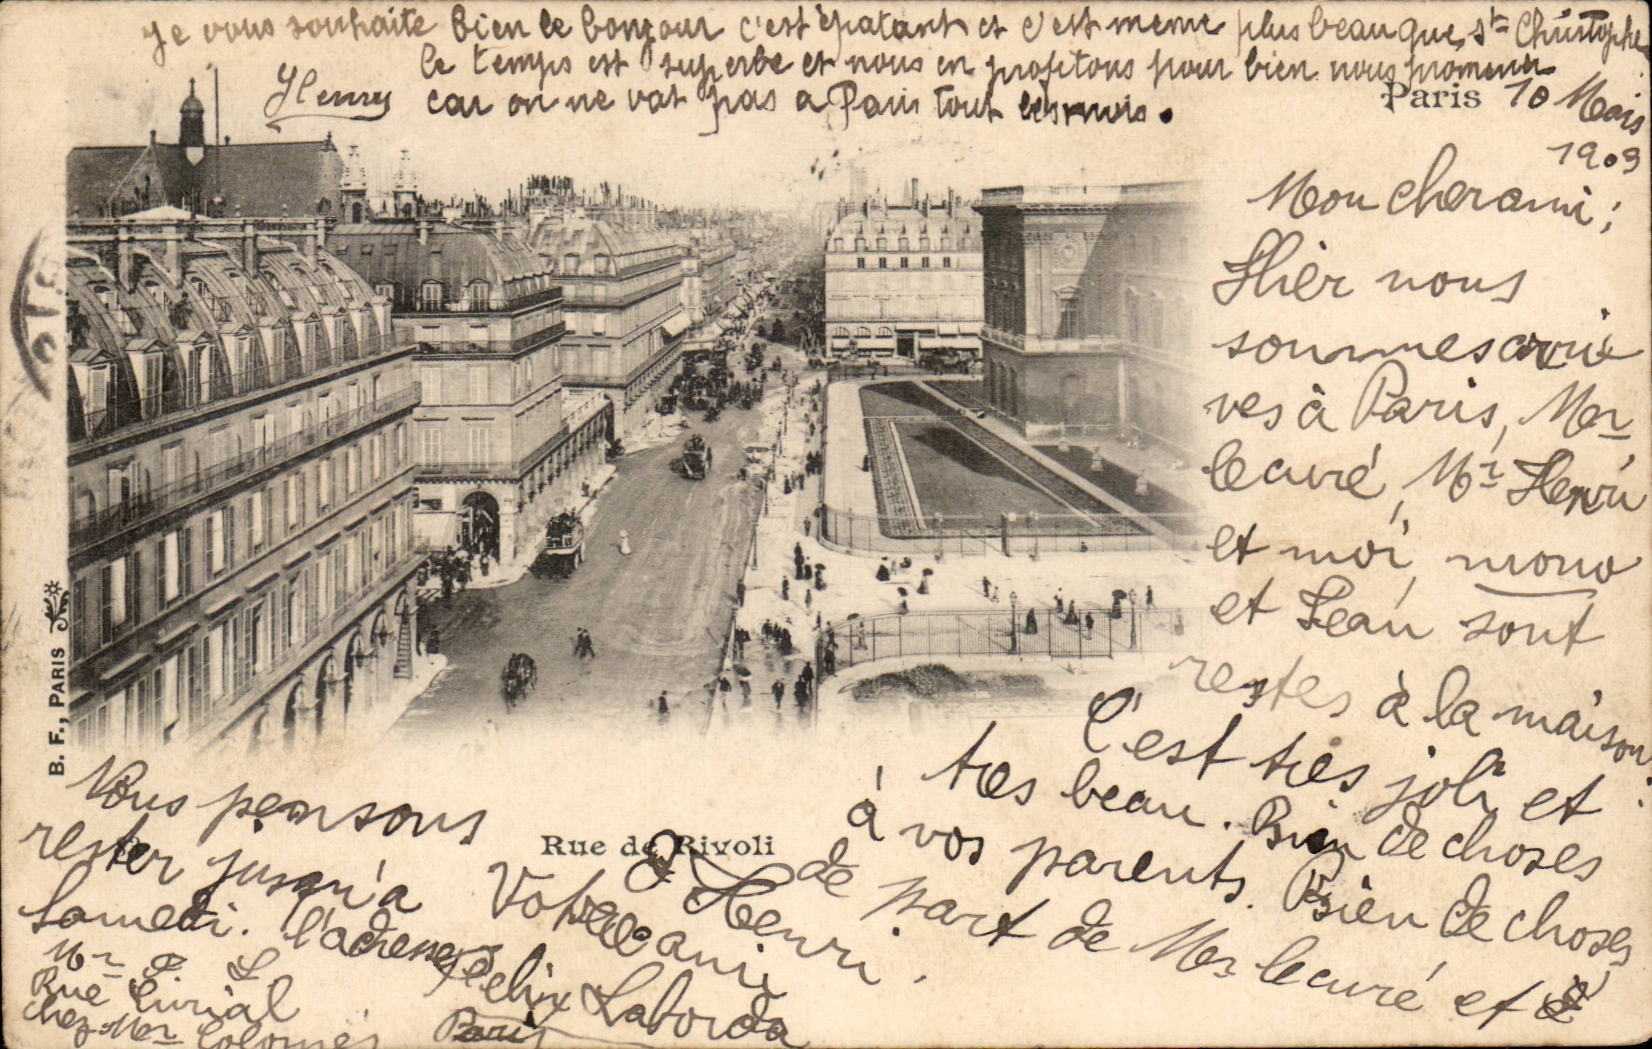 Je vous souhaite bien le bonjour c'est épatant et c'est meme plus beau que St Christophe
le temps est superbe et nous en profitons pour bien nous promener
Henry car on ne vat pas a Paris tout les mois.
Paris 10 Mars
1903
Mon cher ami;
Hier nous
sommes arri
ves à Paris, Mr
le curé, Mr Henri
et moi,
et Jean sont
restes à la maison.
C'est très joli et
tres beau. Bien de choses
à vos parents. Bien de choses
de part de Mr le curé et de
Henri.
B. F., PARIS
Rue de Rivoli
Nous pensons
rester jusqu'à
Samedi. l'adresse
Mr F L
Rue
chez Mr
Paris
Votre ami
Felix Laborda